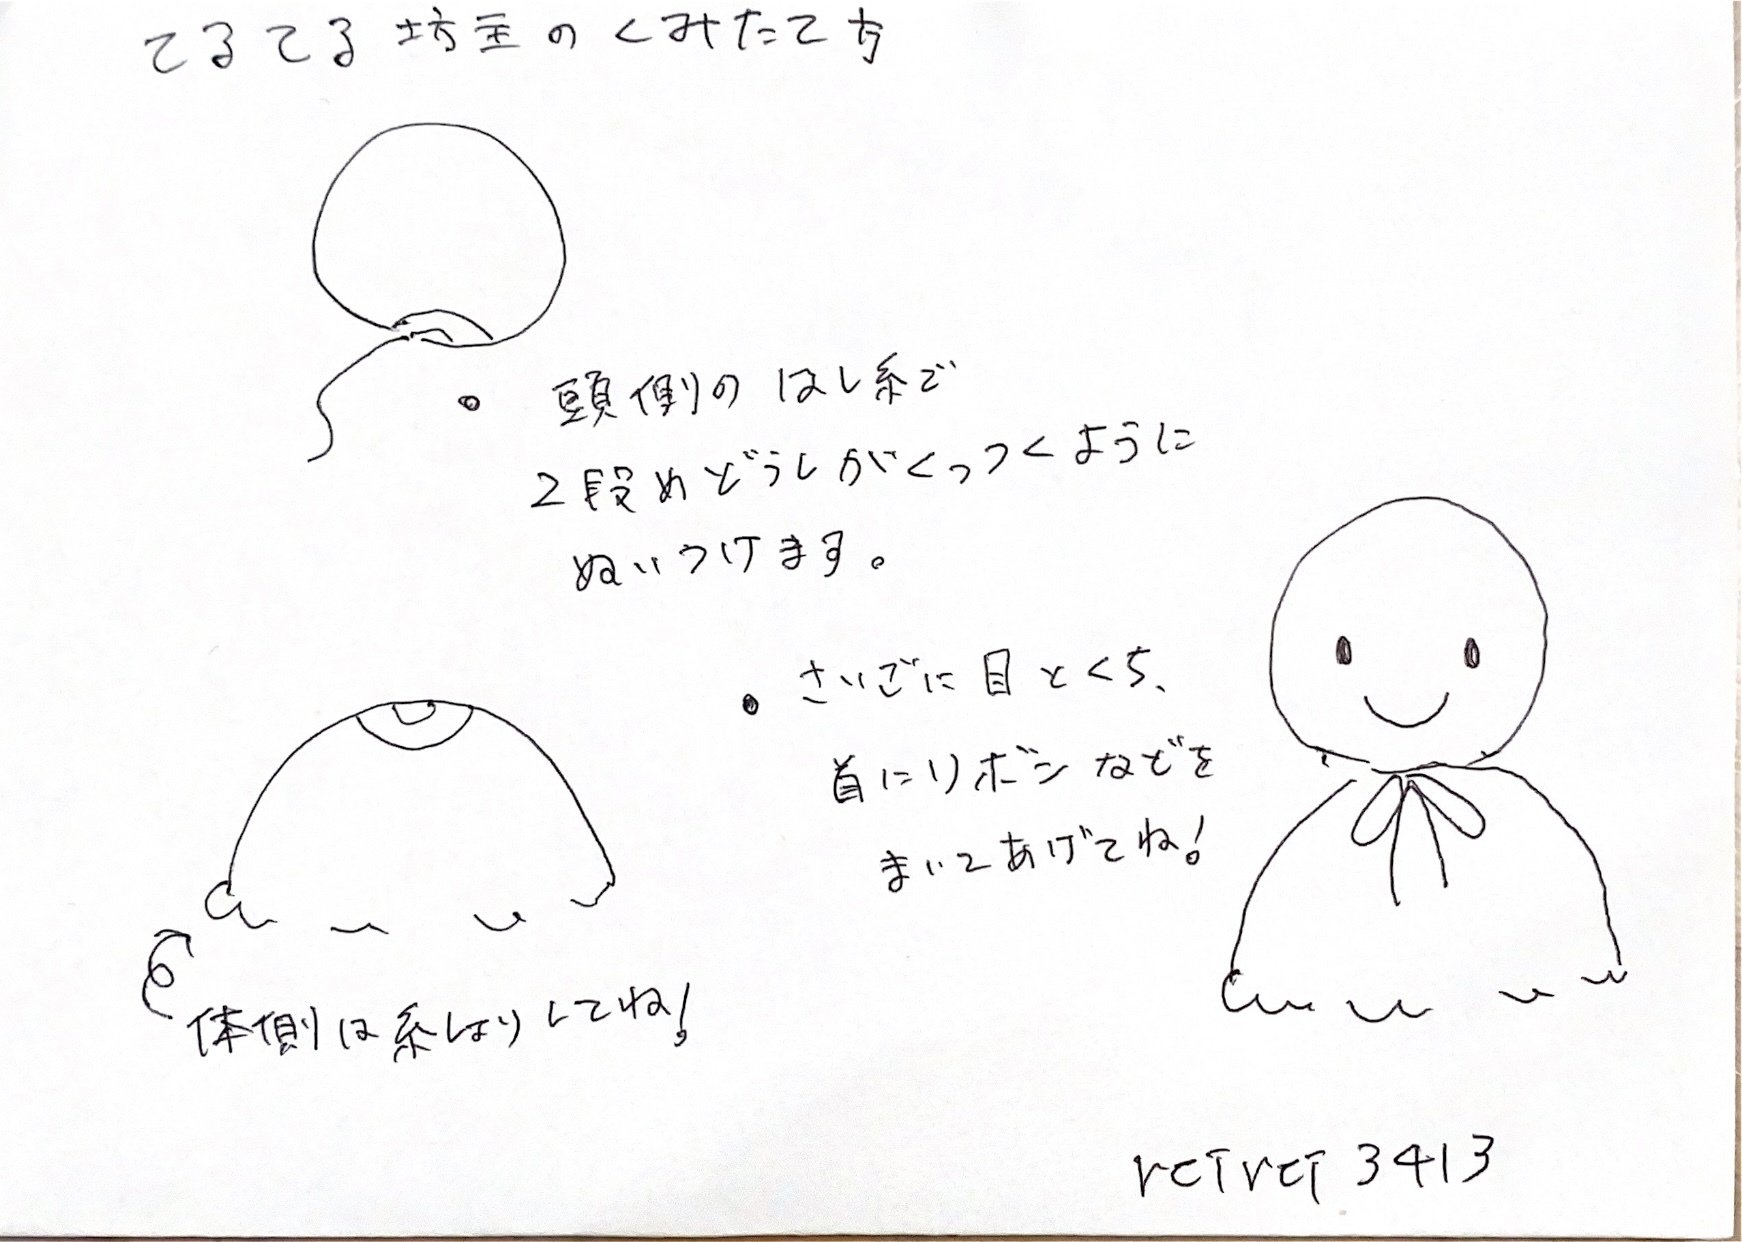 てるてる坊主のくみたて方
頭側のはし糸で
2段めどうしがくっつくように
ぬいつけます。
さいごに目とくち、
首にリボンなどを
まいてあげてね!
体側は糸しまりしてね!
retret 3413